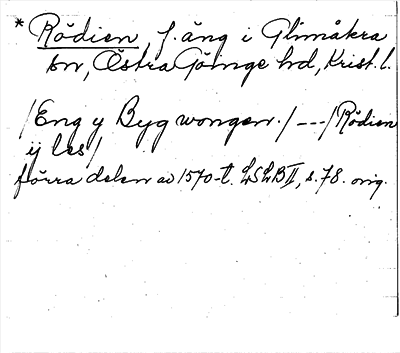 * Rödien f. äng i Glimåkra
sn, Östra Göinge hd, Krist. l.
/Eng y Byg wongen./ ---/Rödien
ij les/
förra delen av 1570-t. LSLB II, s. 78. orig.